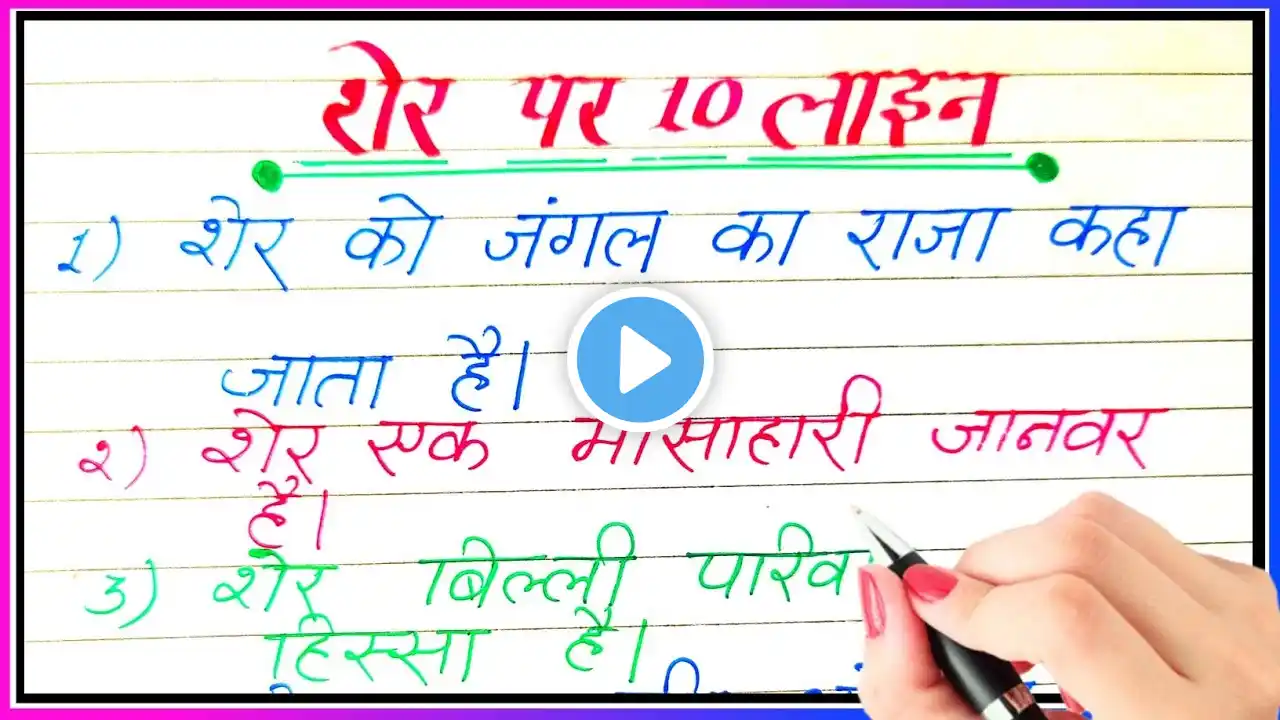 शेर पर 10 लाइन
1) शेर को जंगल का राजा कहा
जाता है।
२) शेर एक मांसाहारी जानवर
है।
3) शेर बिल्ली
हिस्सा है।